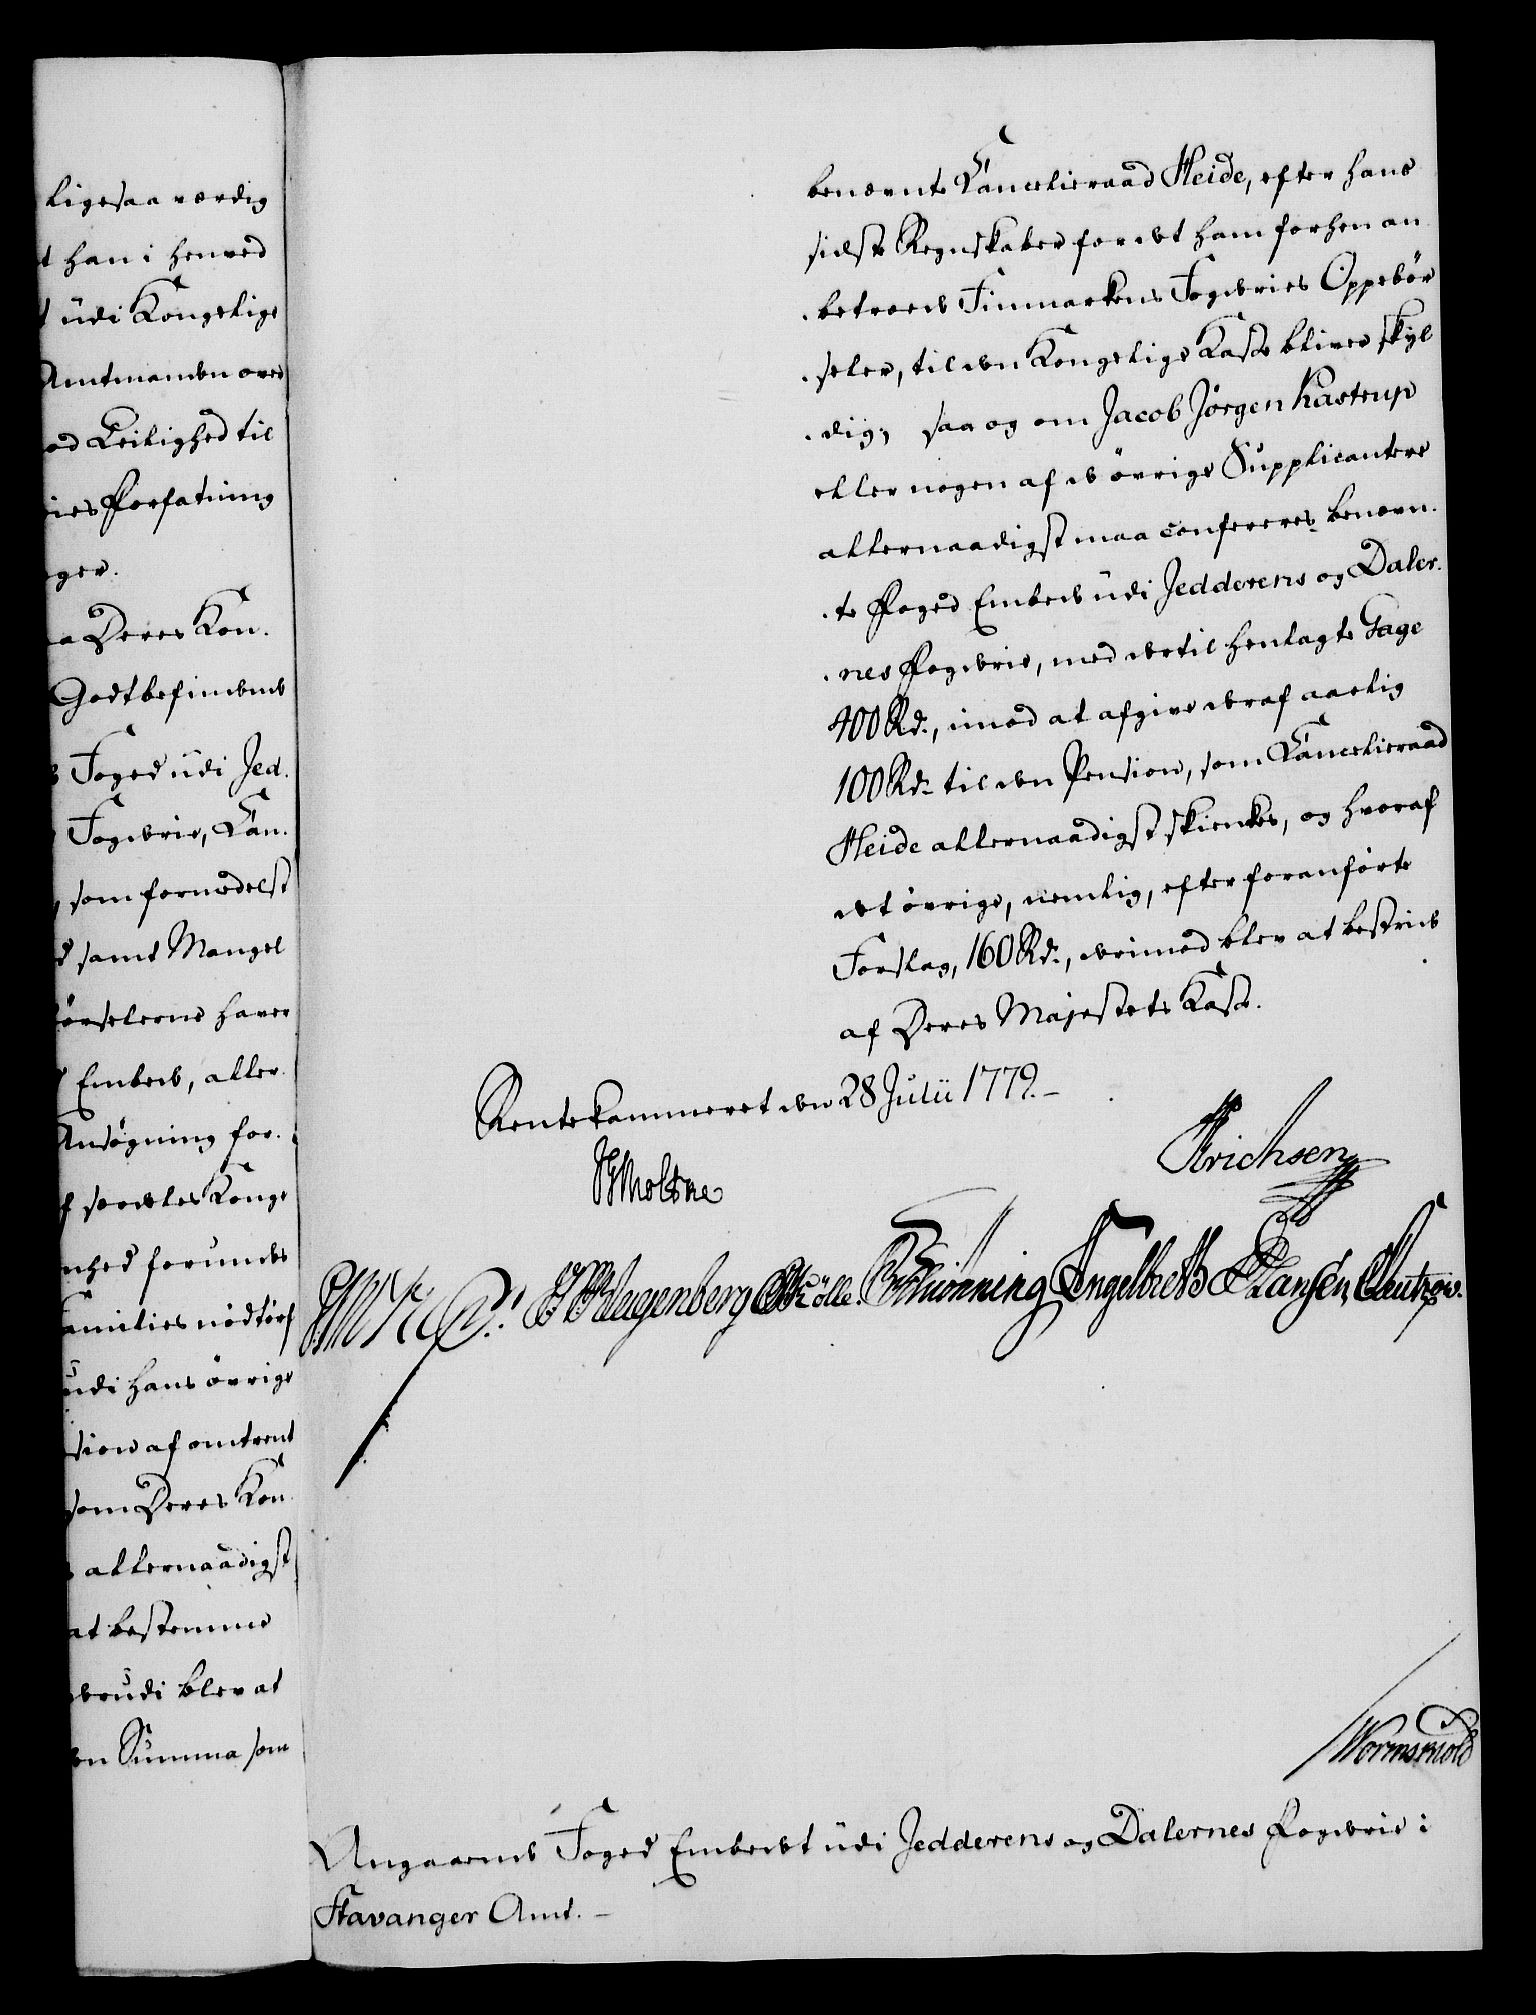 ligesaa værdig
han i henved
udi Kongelige
Amtmanden over
Leilighed til
Forfatning
Deres Kon.
Godtbefindende
Foged udi Jed.
Fogderie, Can.
som formedelst
samt Mangel
haver
Embede, aller.
Ansøgning for.
Konge
forundes
Families nødtørf
udi hans övrige
af omtrent
som Deres Kon
allernaadigst
at bestemme
blev at
Summa som
benævnte Cancelieraad Heide, efter hans
sidste Regnskaber for det ham forhen an
betroede Finmarkens Fogderies Oppebör
seler, til den Kongelige Kasse bliver skyl
dig; saa og om Jacob Jörgen Kastrup
eller nogen af de övrige Supplicantere
allernaadigst maa confereres benævn.
te Foged Embede udi Jedderens og Daler.
nes Fogderie, med dertil henlagte Gage
400 Rd., imod at afgive deraf aarlig
100 Rd. til den Pension, som Cancelieraad
Heide allernaadigst skienkes, og hvoraf
det övrige, nemlig, efter foranförte
Forslag, 160 Rd., derimod blev at bestride
af Deres Majestets Kasse.
Rentekammeret den 28 Julii 1779. –
Moltke
Erichsen
Klagenberg Kölle. Schiönning Engelbreth Hansen Clentzow.
Wormskiold
Angaaende Foged Embedet udi Jedderens og Dalernes Fogderie i
Stavanger Amt. –